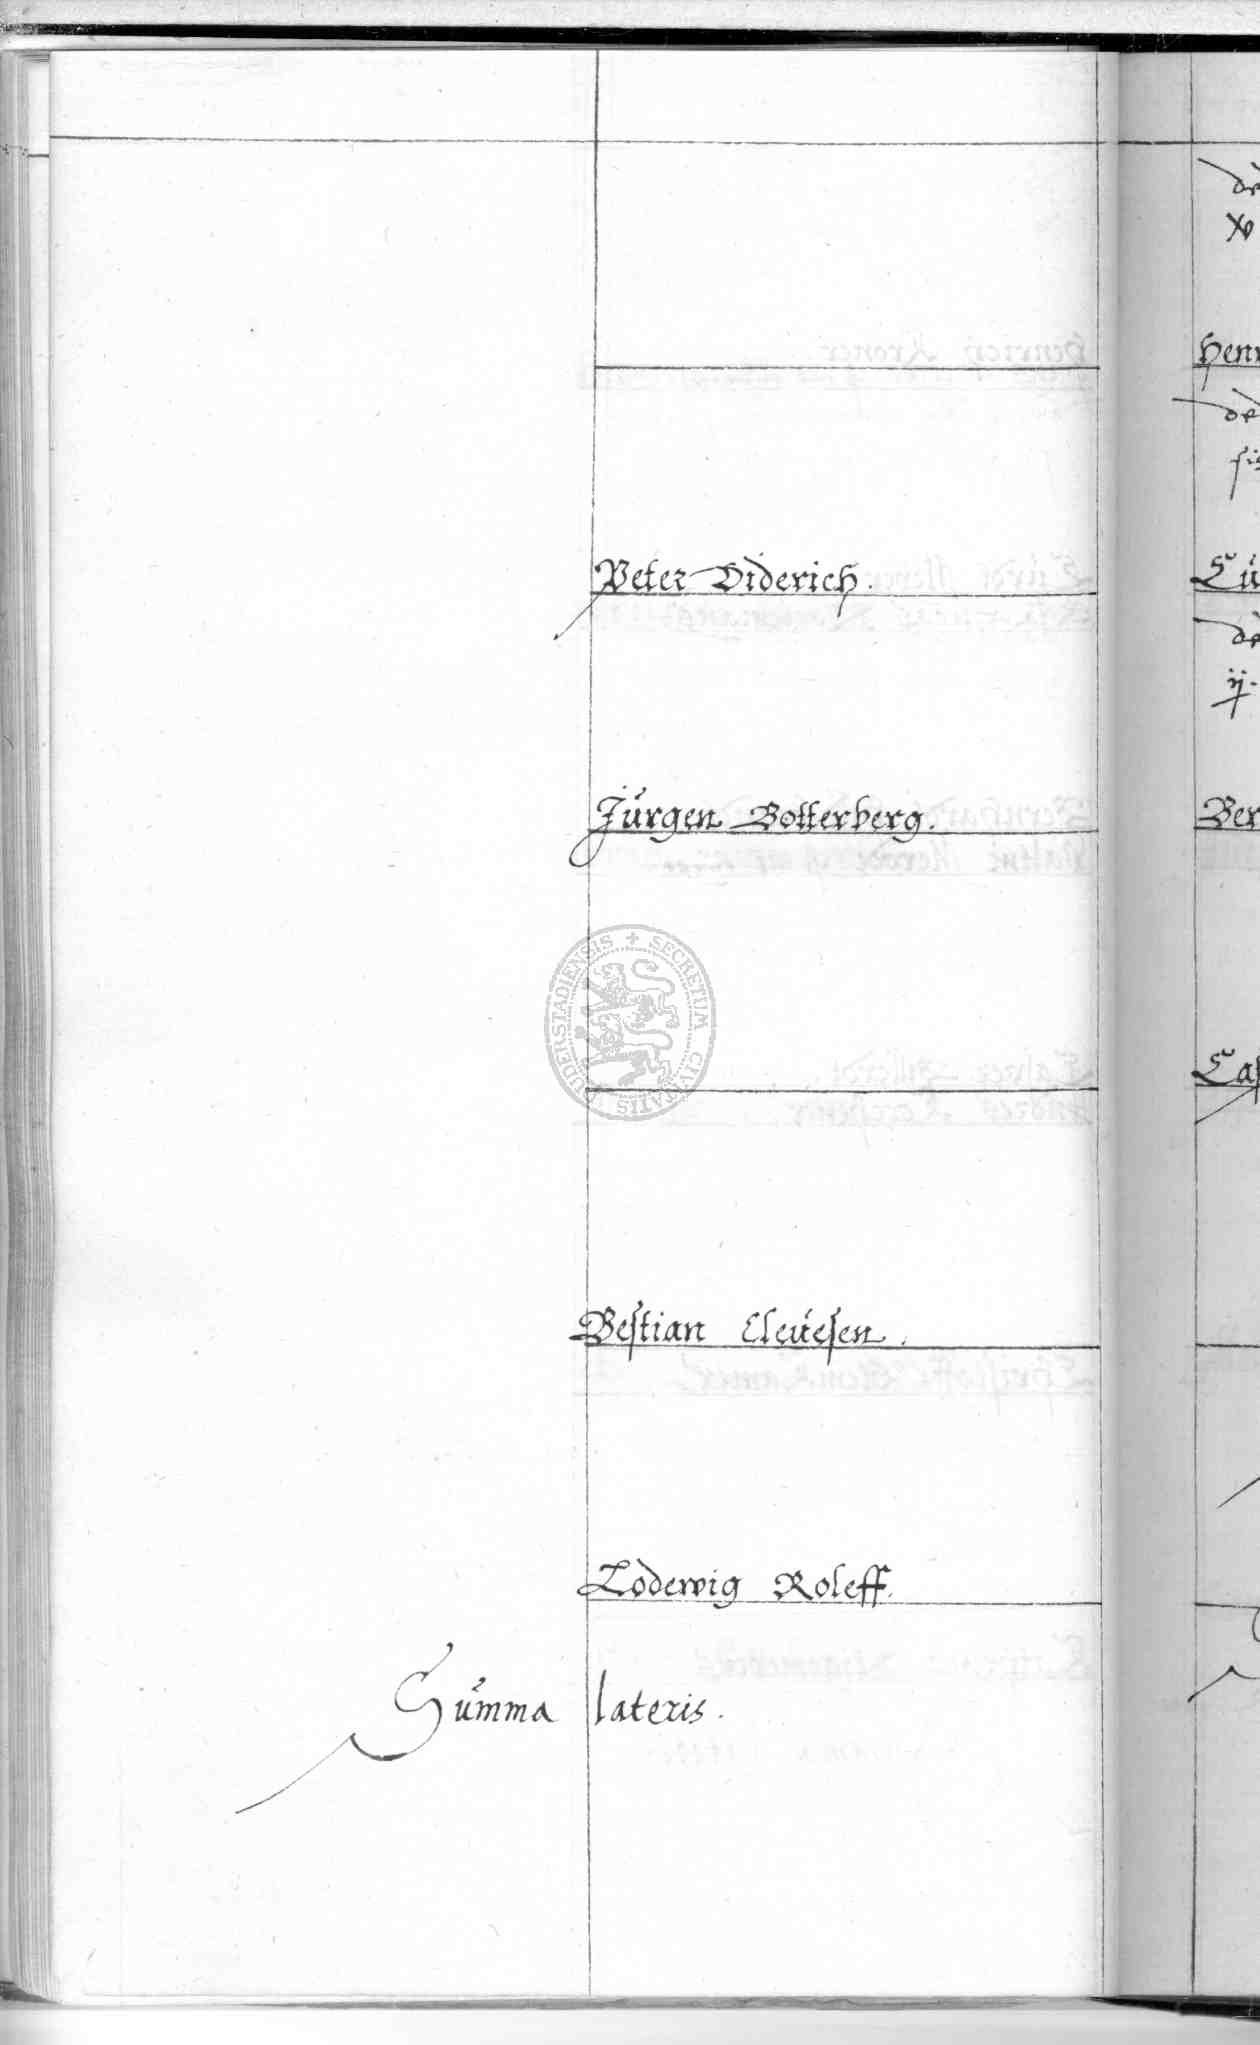 Peter Diderich.
Jürgen Botterberg.
SECRETUM CIVITATIS DUDERSTADIENSIS
Bestian Cleuesen.
Lodewig Roleff.
Summa lateris.
de
xv
Henr
de
Cü
de
ij.
Ber
Cas